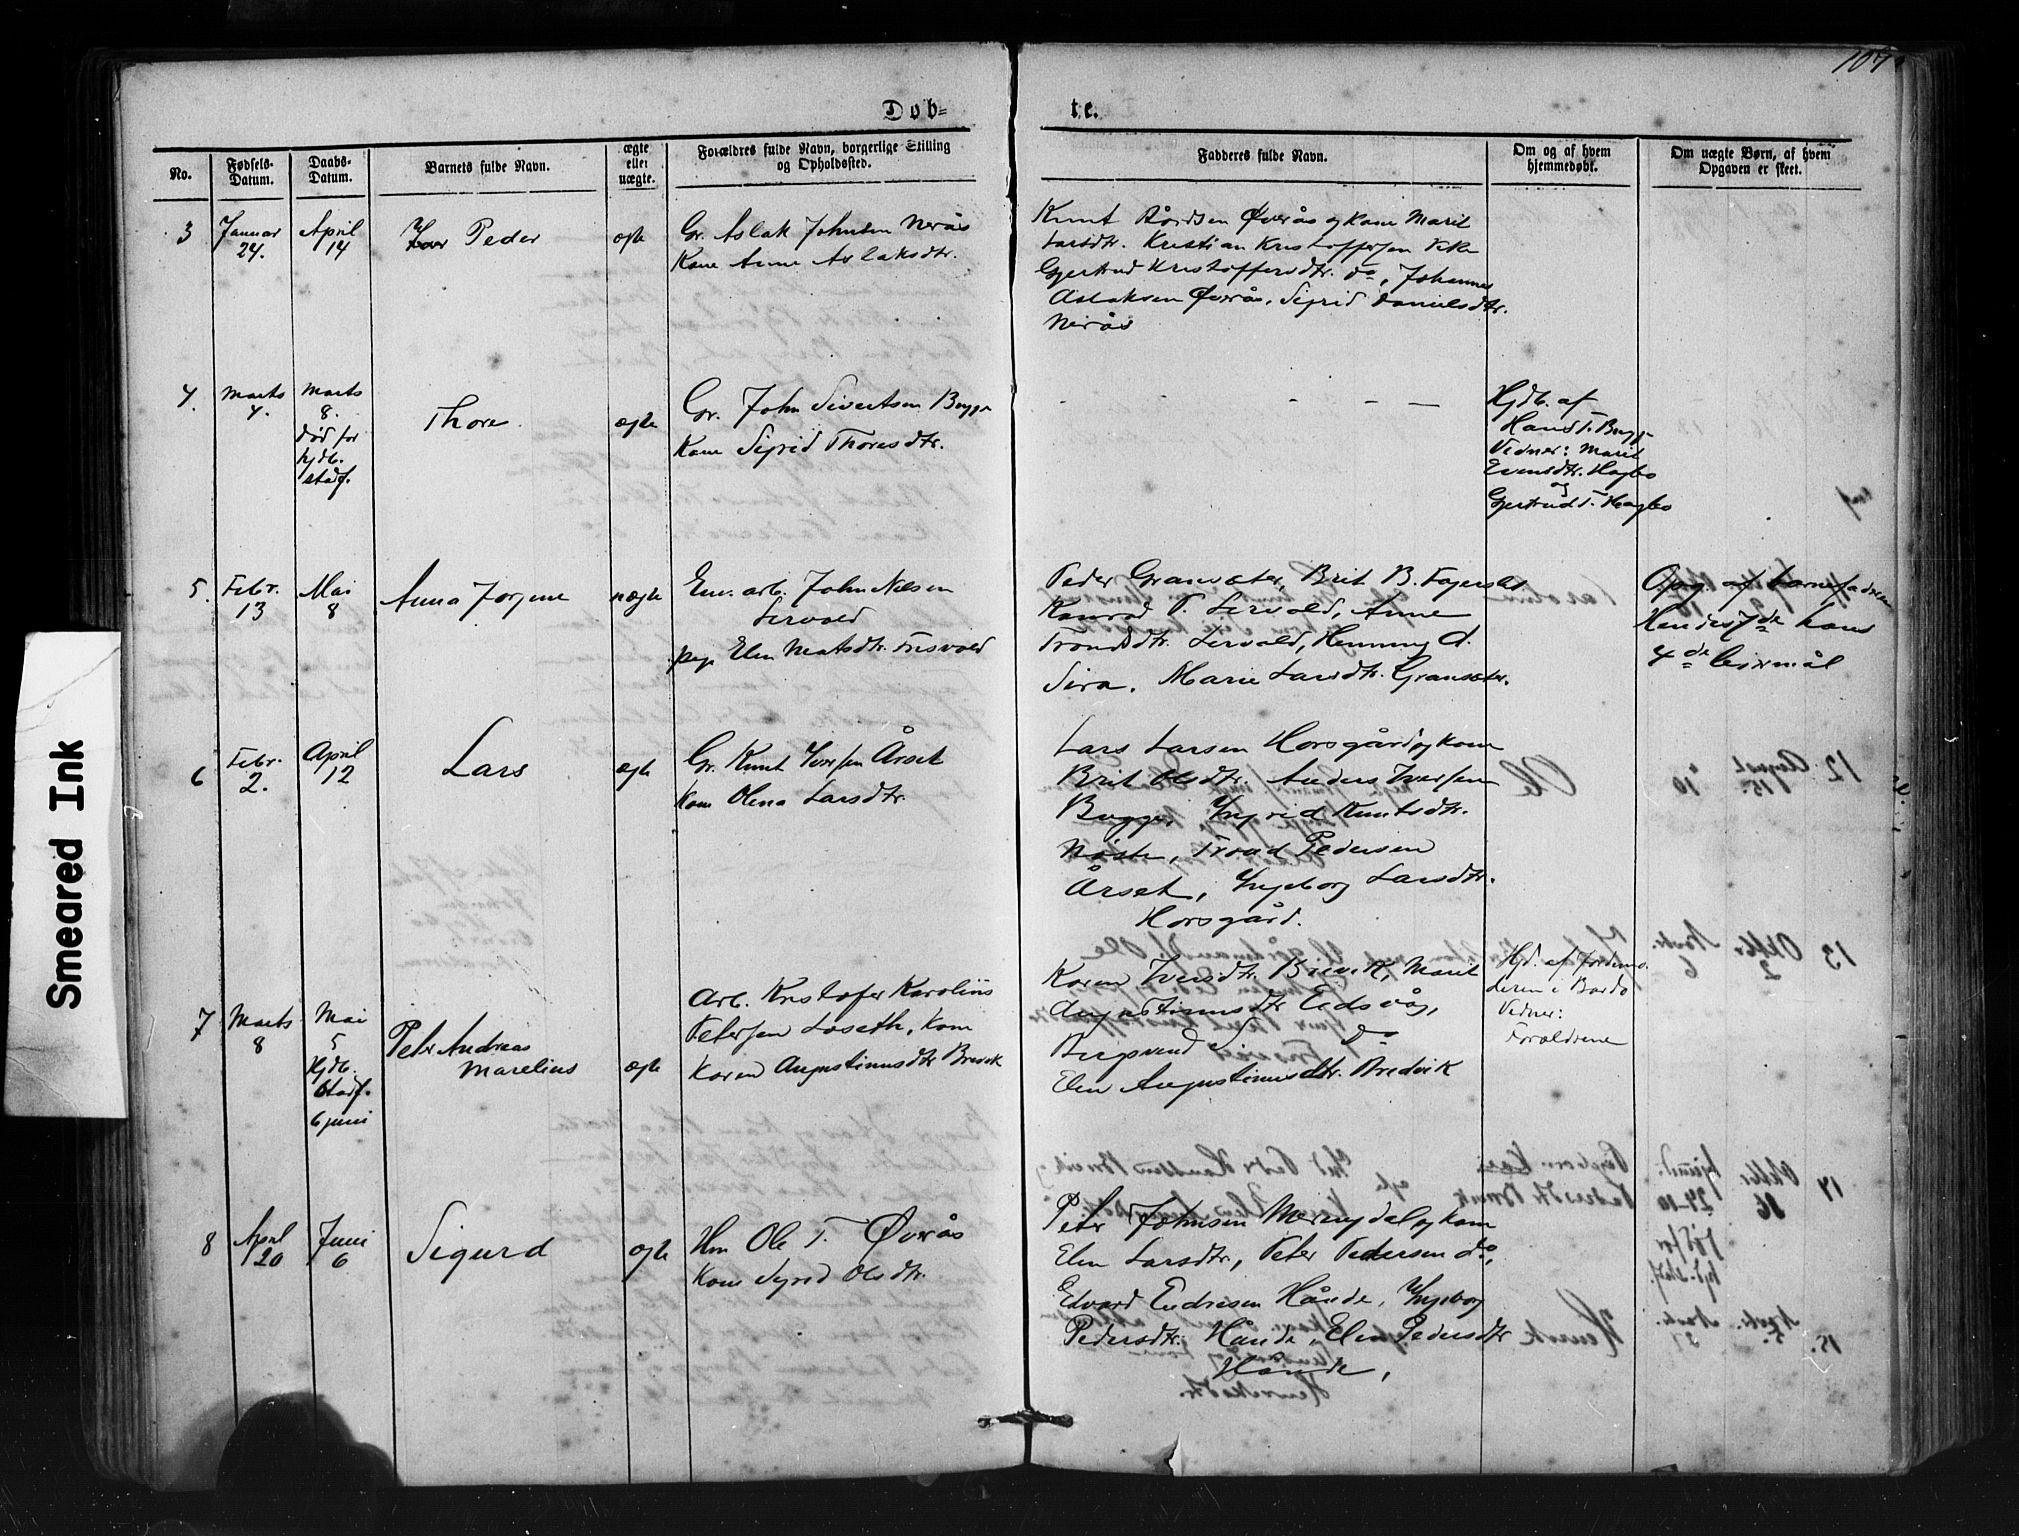 107
Døb=
te.
No.
Fødsels-
Datum.
Daabs-
Datum.
Barnets fulde Navn.
ægte
eller
uægte.
Forældres fulde Navn, borgerlige Stilling
og Opholdssted.
Fadderes fulde Navn.
Om og af hvem
hjemmedøbt.
Om uægte Børn, af hvem
Opgaven er skeet.
3
Januar
24.
April
14
Peder
ægte
Gr. Aslak Johnsen Nerås
Kone Anne Aslaksdtr.
Knut Bårdsen Øverås og kone Marit
Larsdtr. Kristian Kristoffersen
Gjertrud Kristoffersdtr. do, Johannes
Aslaksen Øverås, Sigrid Danielsdtr.
Nerås
4.
Marts
4.
Marts
8.
død før
hjdb.
stadf.
Thore.
ægte
Gr. John Sivertsen Bugge
Kone Sigrid Thoresdtr.
Hjdb. af
Hans T. Bugge
Vidner: Marit
Evensdtr. Hagbø
og
Gjertrud T. Hagbø
5.
Febr.
13
Mai
8
Anna Jorgine
uægte
Em. arb. John Nilsen
Lervold
pige Elen Matsdtr. Tresvold
Peder Gransæter, Brit B. Fagerslet
Konrad P. Lervold, Anne
Trondsdtr. Lervold, Henning A.
Sira, Marie Larsdtr. Gransæter.
Opg. af barnefaderen
Hendes 7de hans
4de leiermål
6
Febr.
2.
April
12
Lars
ægte
Gr. Knut Iversen Årset
Kone Olena Larsdtr.
Lars Larsen Horsgård og kone
Brit Olsdtr. Anders Iversen
Bugge, Ingrid Knutsdtr.
Nøste, Trond Pedersen
Årset, Ingeborg Larsdtr.
Horsgård.
7
Marts
8
Mai
5
Hjdb.
Stadf.
6 juni
Peter Andreas
Marelius
ægte
Arb. Kristofer Karoliis
Petersen Loseth, Kone
Karen Augustinusdtr Brevik
Karen Iversdtr. Brevik, Marit
Augustinusdtr Eidsvåg,
Bergsvend do
Elen Augustinusdtr. Bredvik
Hjd. af Jordemo-
deren
Vidner:
Forældrene
8
April
20
Juni
6
Sigurd
ægte
Hm Ole T. Øverås
Kone Sigrid Olsdtr.
Peter Johnsen Meringdal og kone
Elen Larsdtr, Peter Pedersen do,
Edvard Endresen Hånde, Ingeborg
Pedersdtr. Hånde, Elen Pedersdtr
Hånde,
Smeared Ink